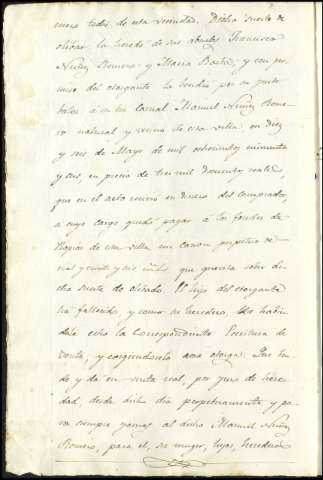 mero todos de esta vecindad. Dicha suerte de
olibar la heredó de sus abuelos Francisco
Nuñez Romero y Maria Basta, y con per-
miso del otorgante la bendió por su justo
balor á su tio carnal Manuel Nuñez Rome-
ro natural y vecino de esta villa, en diez
y seis de Mayo de mil ochocientos cincuenta
y tres, en precio de tres mil doscientos reales,
que en el acto recivió en dinero del comprador,
a cuyo cargo quedó pagar á los fondos de
Propios de esta villa un canon perpetuo de
reales y veinte y seis que gravita sobre di-
cha suerte de olibado. El hijo del otorgante
ha fallecido, y como su heredero
dole este la Correspondiente Escritura de
Venta, y exigiendosela ahora otorga: Que ben-
de y da en venta real, por juro de here-
dad, desde dicho dia perpetuamente y pa-
ra siempre jamas al dicho Manuel Nuñez
Romero, para el, su muger, hijos, herederos